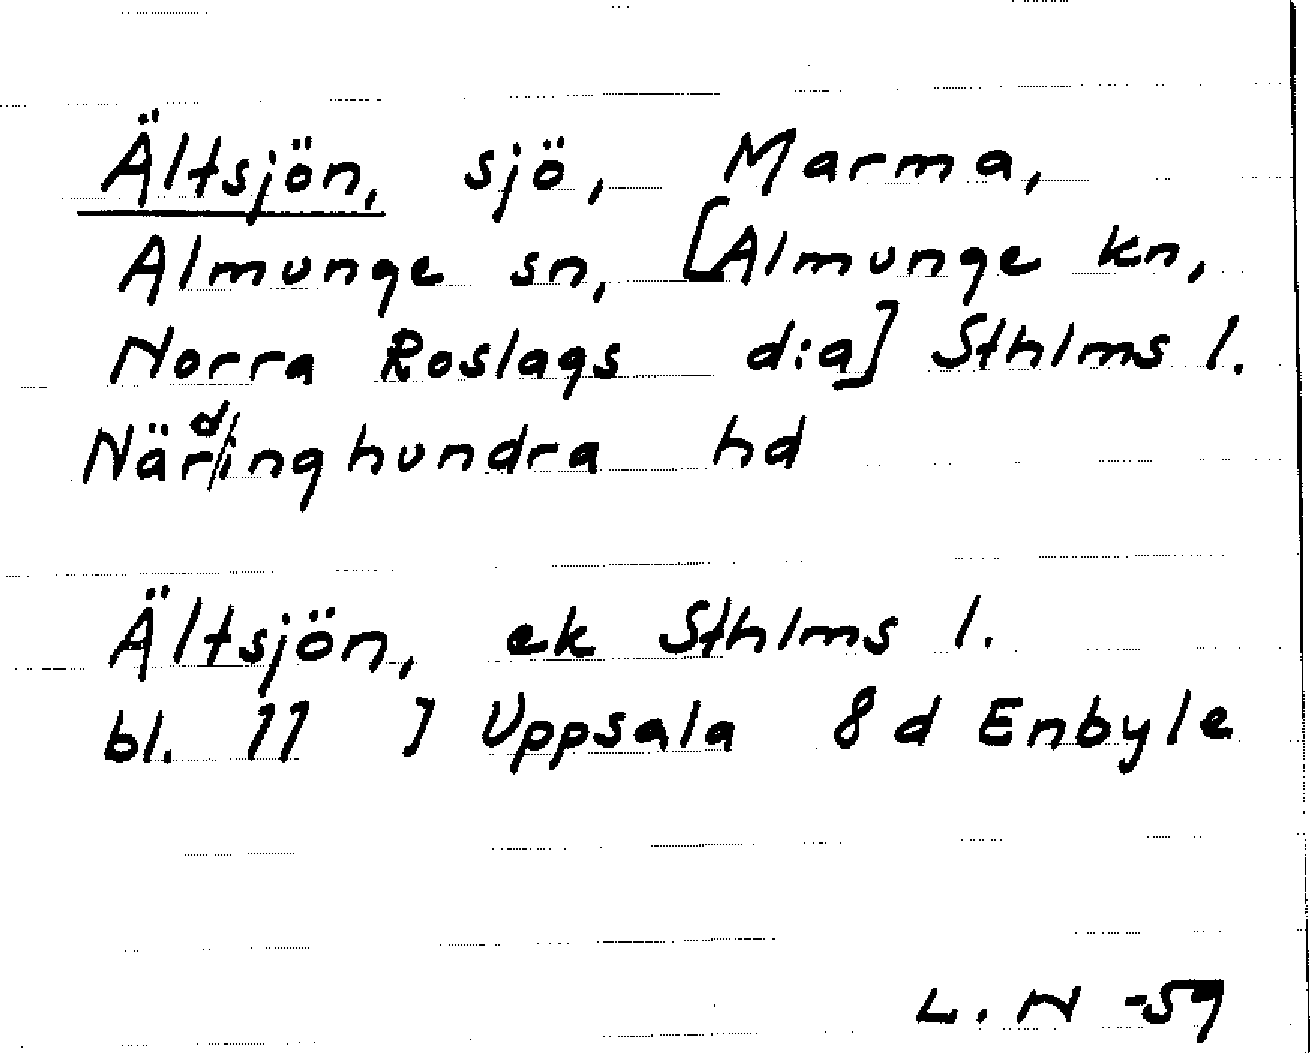 Ältsjön, sjö, Marma,
Almunge sn, [Almunge kn,
Norra Roslags d:a] Sthlms l.
Närdinghundra hd
Ältsjön, ek Sthlms l.
bl. 77 J Uppsala 8 d Enbyle
L. N -59